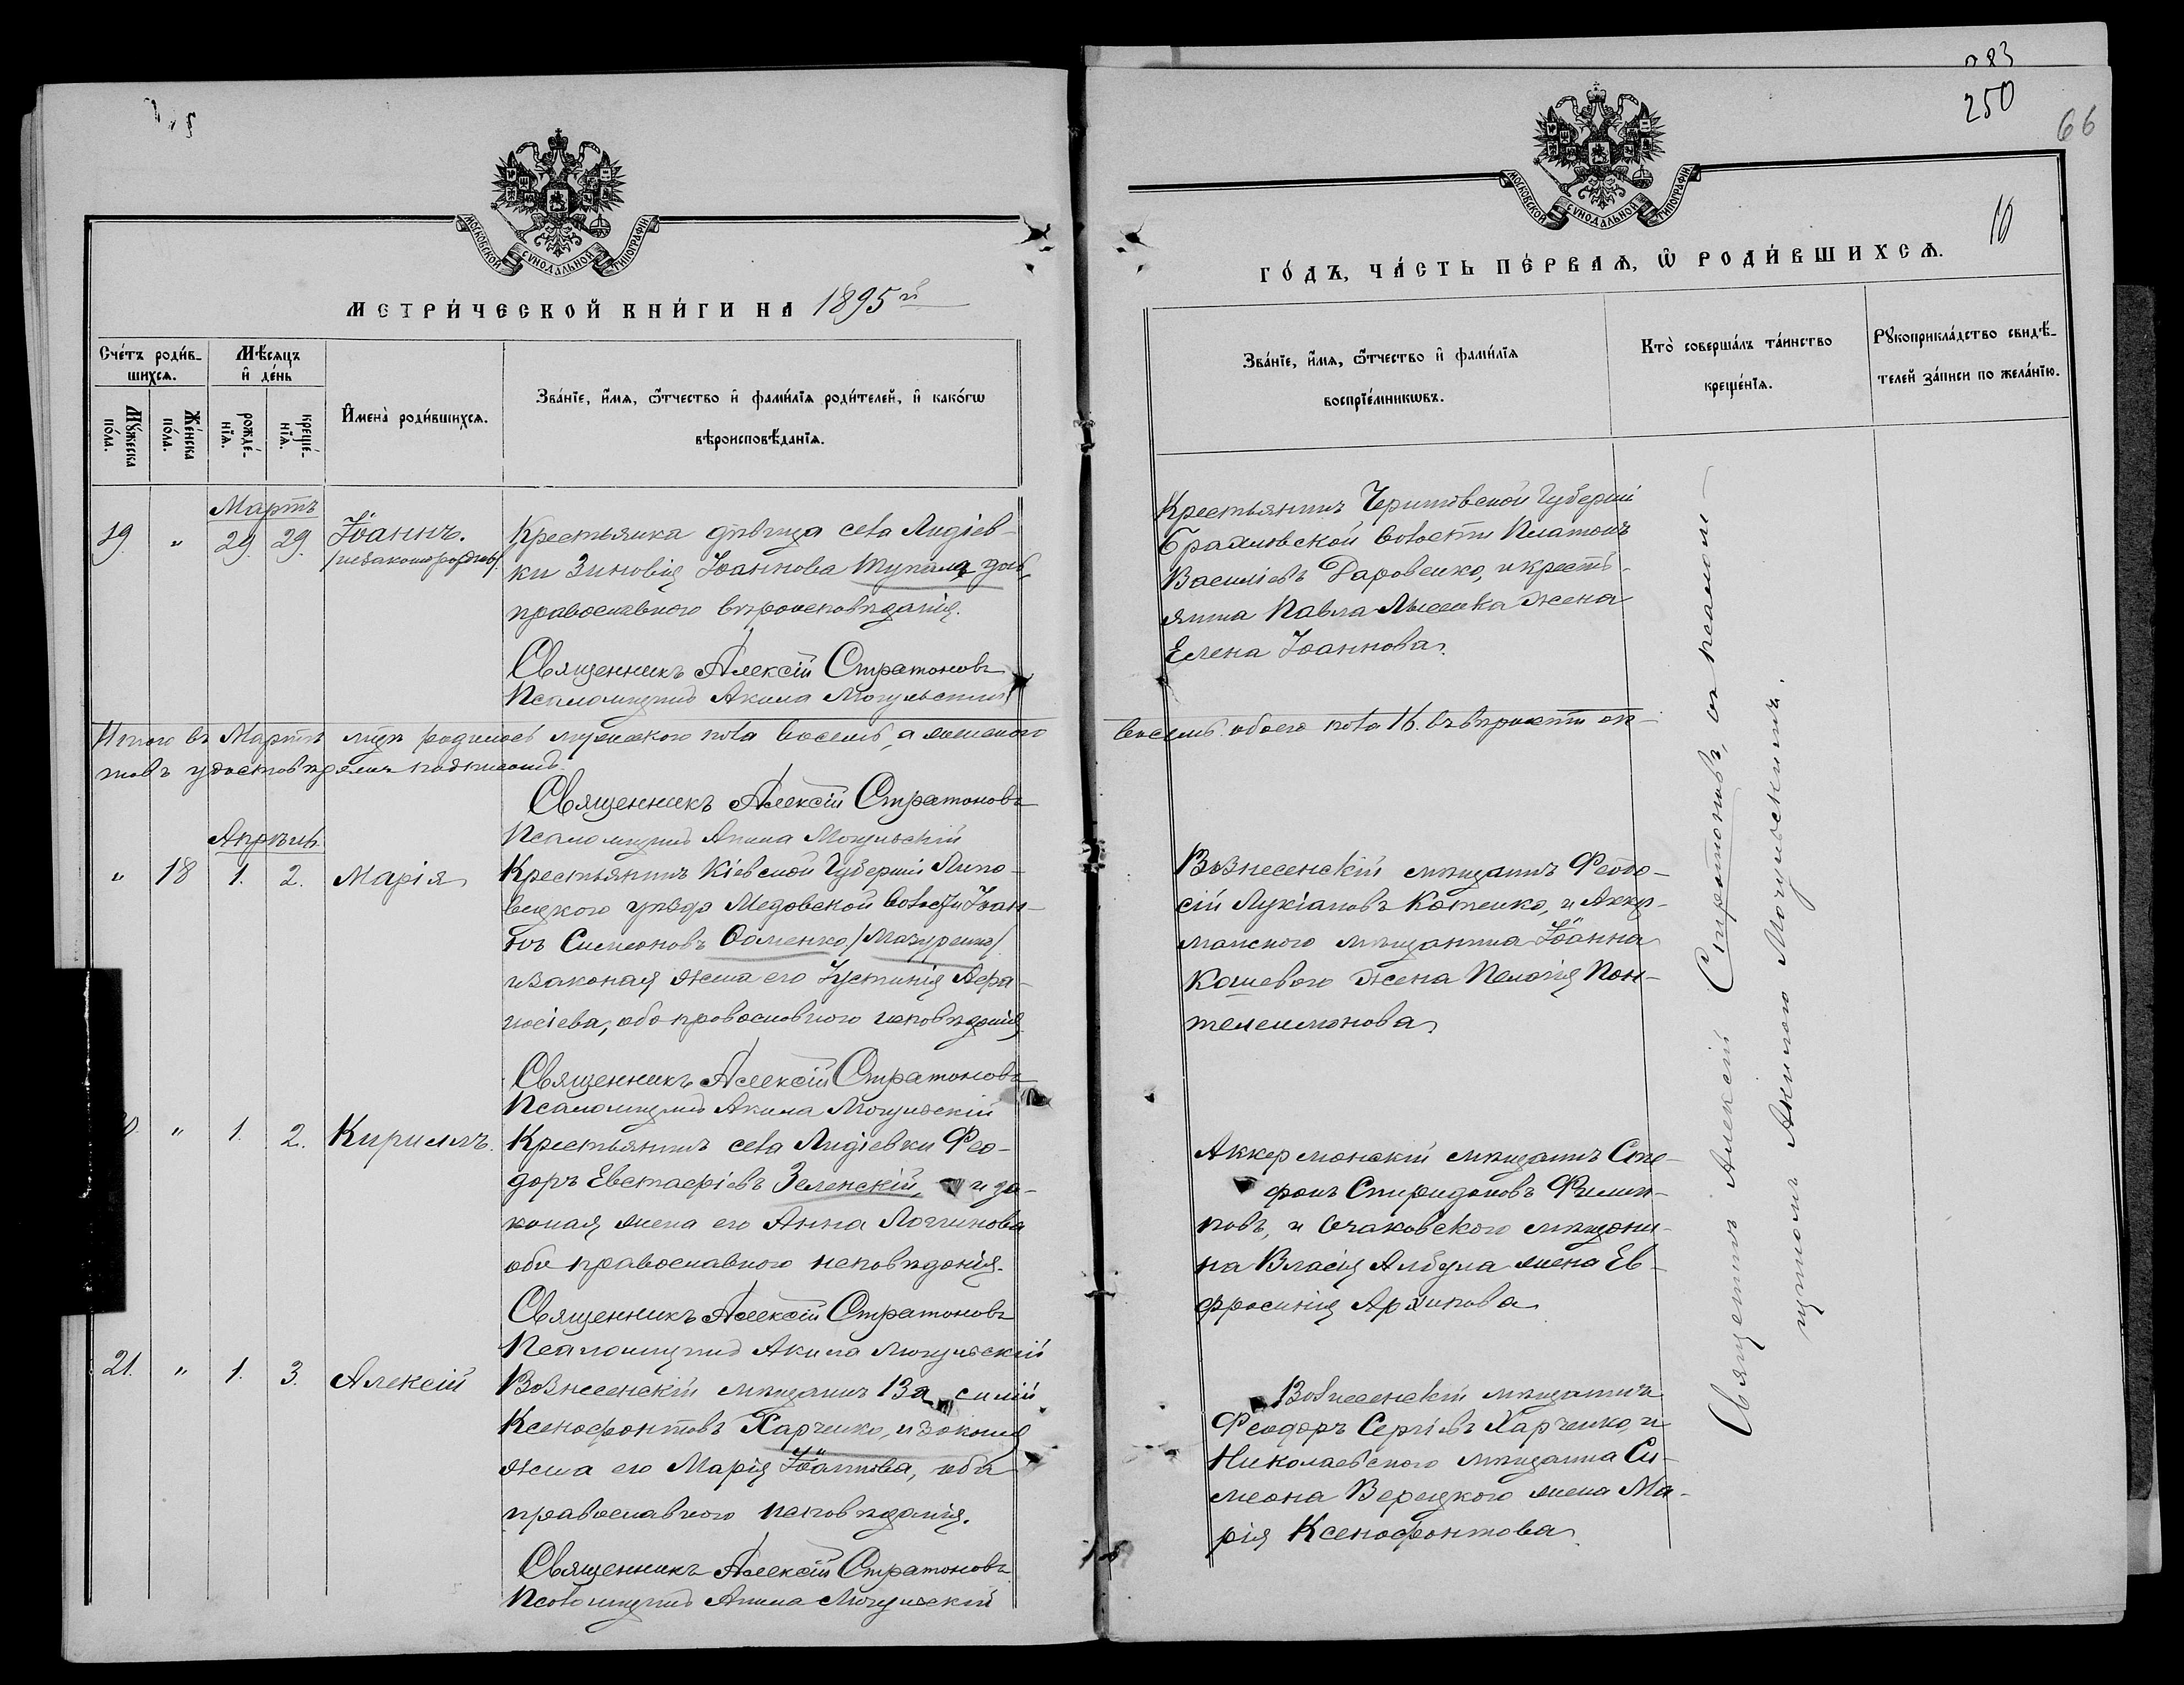 МОСКОВСКОЙ СѴНОДАЛЬНОЙ ТИПОГРАФІИ
МЕТРИ́ЧЕСКОЙ КНИ́ГИ НА 1895й
Сче́тъ роди́в-
шихсѧ.
Мѣ́сѧцъ
и҆ де́нь
Мꙋ́жеска
по́ла.
Же́нска
по́ла.
рожде́-
нїѧ.
креще́-
нїѧ.
И҆мена̀ роди́вшихсѧ.
Зва́нїе, и҆́мѧ, ѻ҆́тчество и҆ фами́лїѧ роди́телей, и҆ како́гѡ
вѣроисповѣ́данїѧ.
Мартъ
19. " 29. 29. Іоаннъ.
/незаконорожд/
Крестьянка дѣвица села Лидіев-
ки Зиновія Іоаннова
православнаго вѣроисповѣданія.
Священникъ Алексій Стратоновъ
Псаломщикъ Акила Могульскій
Итого въ Мартѣ мцѣ родилось мужескаго пола восемь, а женскаго
товъ удостовѣряемъ подписомъ.
Священникъ Алексій Стратоновъ
Псаломщикъ Акила Могульскій
Апрѣль
" 18 1. 2. Марія
Крестьянинъ Кіевской Губерніи Липо-
вецкого уѣзда Медовской волости Іоан-
нъ Симеоновъ /Мазуренко/
и законая жена его Іустинія Аѳа-
насіева, оба православного исповѣданія
Священникъ Алексій Стратоновъ
Псаломщикъ Акила Могульскій
" 1. 2. Кириллъ.
Крестьянинъ села Лидіевки Ѳео-
доръ Евстафіевъ Зеленскій, и за-
коная жена его Анна Логгинова
оба православного исповѣданія.
Священникъ Алексій Стратоновъ
Псаломщикъ Акила Могульскій
21. " 1. 3. Алексій
Вознесенскій мѣщанинъ Ва силій
Ксенофонтовъ Харченко, и законая
жена его Марія Іоаннова, оба
православного исповѣданія.
Священникъ Алексій Стратоновъ
Псаломщикъ Акила Могульскій
283
250
66
10
МОСКОВСКОЙ СѴНОДАЛЬНОЙ ТИПОГРАФІИ
ГО́ДЪ, ЧА́СТЬ ПЕ́РВАѦ, Ѡ҆ РОДИ́ВШИХСѦ.
Зва́нїе, и҆́мѧ, ѻ҆́тчество и҆ фами́лїѧ
воспрїе́мникѡвъ.
Кто̀ соверша́лъ та́инство
креще́нїѧ.
Рꙋкоприкла́дство свидѣ́-
телей за́писи по жела́нїю.
Крестьянинъ Черниговской Губерніи
волости Платонъ
Василіевъ Даровенко, и кресть-
янина Павла жена
Елена Іоаннова.
восемь. обоего пола 16. въ вѣрности ак-
Вознесенскій мѣщанинъ Ѳеодо-
сій Лукіановъ Котенко, и Аккер-
манского мѣщанина Іоанна
Кошевого жена Пелагія Пан-
телеимонова.
Аккерманскій мѣщанинъ Сте-
фанъ Спиридоновъ Филип-
повъ, и Очаковского мѣщани-
на Власія Албула жена Ев-
фросинія Архипова
Вознесенскій мѣщанинъ
Ѳеодоръ Сергіевъ Харченко, и
Николаевского мѣщанина Си-
меона Верецкого жена Ма-
рія Ксенофонтова.
Священникъ Алексій Стратоновъ, съ псалом-
щикомъ Акилою Могульскимъ.